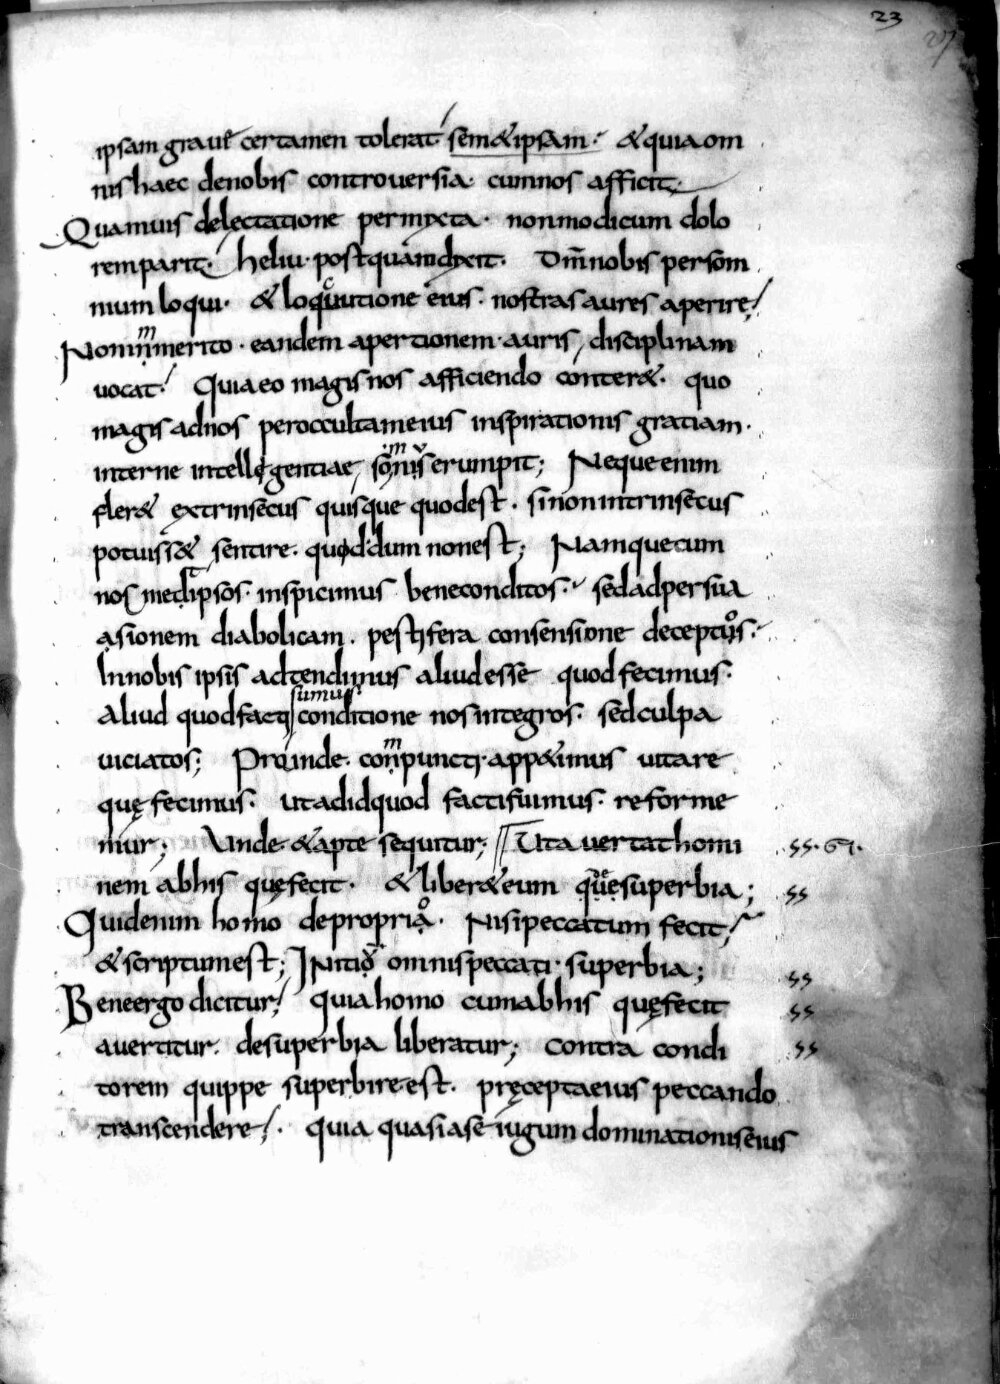 23
207
ipsam graue certamen tolerat semetipsam. & quia om
nis haec de nobis controuersia. cum nos afficit.
Quamuis delectatione permyxta. non modicum dolo
rem parit. heliu. postquam dyxit. Dm̄ nobis per som
nium loqui. & loqucutione eius. nostras aures aperire.
Non inmmerito. eandem apertionem auris, disciplinam
uocat. Quia eo magis nos afficiendo conter&. quo
magis ad nos per occultam eius inspirationis gratiam.
interne intellegentiae, somnis erumpit; Neque enim
fler& extrinsecus quisque quod est. si non intrinsecus
potuiss& sentire. quod dum non est; Namque cum
nosmedtipsos. inspicimus bene conditos. sed ad persua
asionem diabolicam. pestifera consensione deceptuos.
In nobis ipsis adtendimus aliud esse quod fecimus.
aliud quod facti sumus conditione nos integros. sed culpa
uiciatos; Proinde. conmpuncti. app&imus uitare
quę fecimus. ut ad id quod facti fuimus. reforme
mur; Unde & apte sequitur; Ut auertat homi
ss. 61.
nem ab his quę fecit. & liber& eum quęae superbia;
ss
Quid enim homo de propriao. Nisi peccatum fecit;
& scriptum est; Initio omnis peccati. superbia;
ss
Bene ergo dicitur; quia homo cum ab his quę fecit
ss
auertitur. de superbia liberatur; contra condi
ss
torem quippe superbire est. pręcepta eius peccando
transcendere;. quia quasi a se iugum dominationis eius